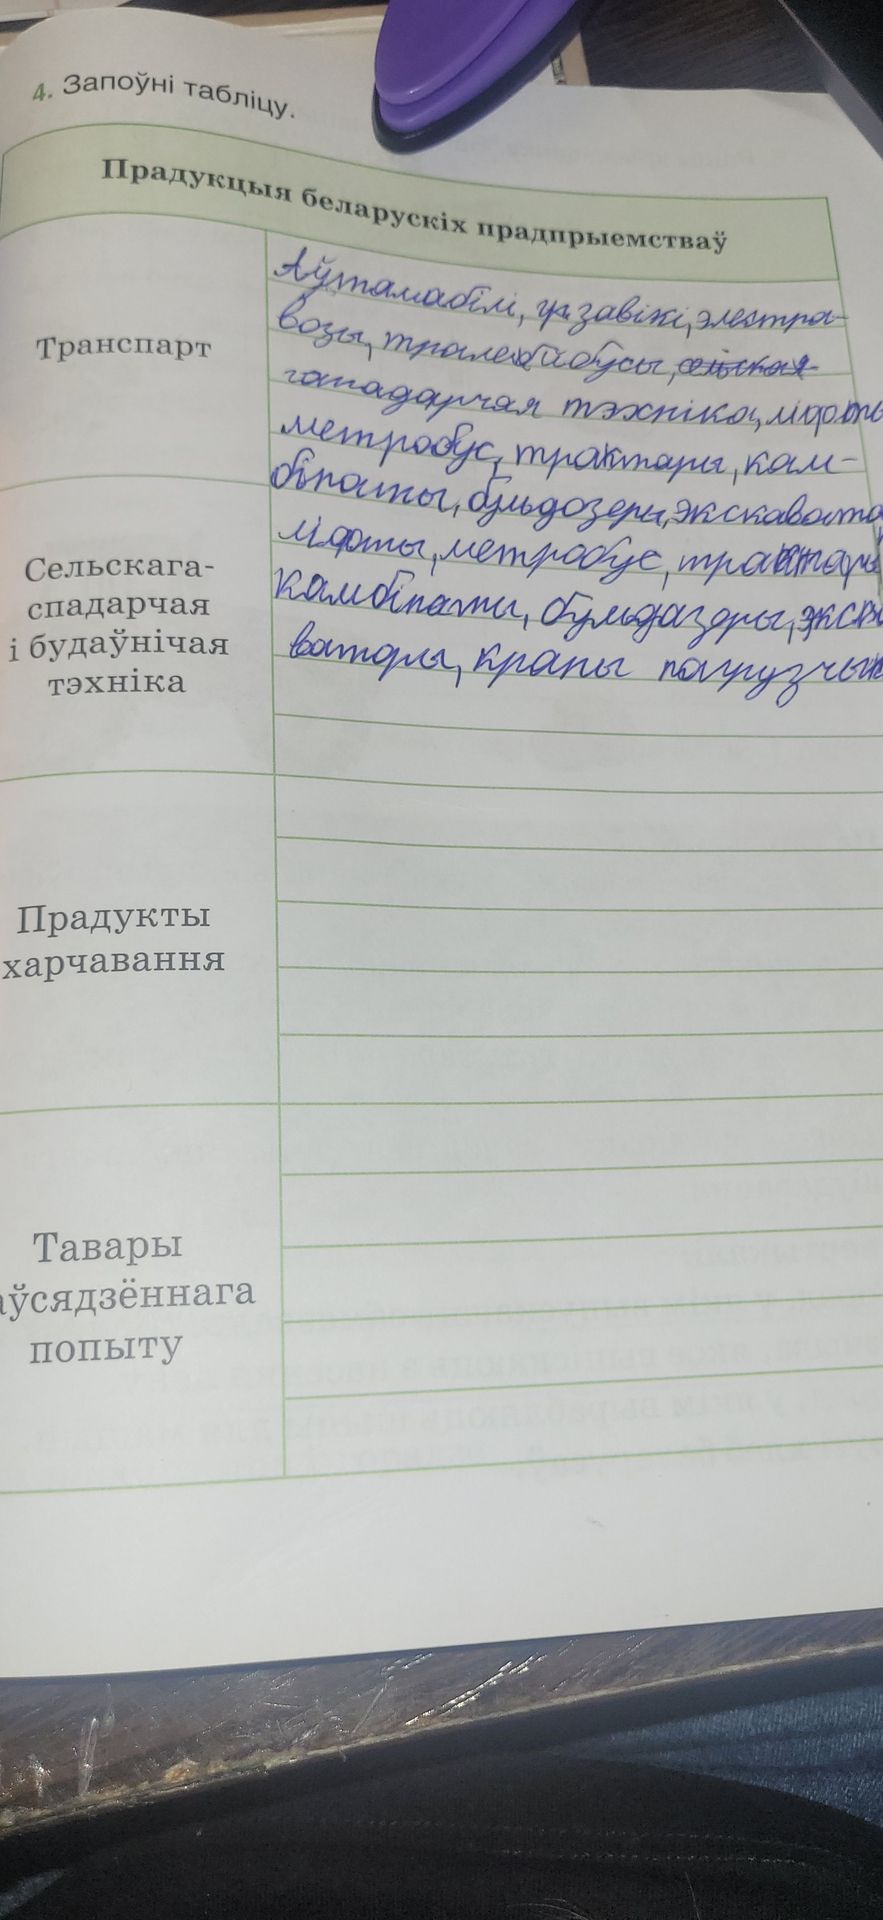 4. Запоўні табліцу.
Прадукцыя беларускіх прадпрыемстваў
Транспарт
Аўтамабілі, грузавікі, электра-
возы, тралейбусы, сельская-
гападарчая тэхніка, ліфты
метробус, трактары, кам-
Сельскага-
спадарчая
і будаўнічая
тэхніка
бінаты, бульдозеры, экскавато
ліфты, метробус, трактары
камбінаты, бульдазеры, экска
ваторы, краны погрузчык
Прадукты
харчавання
Тавары
аўсядзённага
попыту